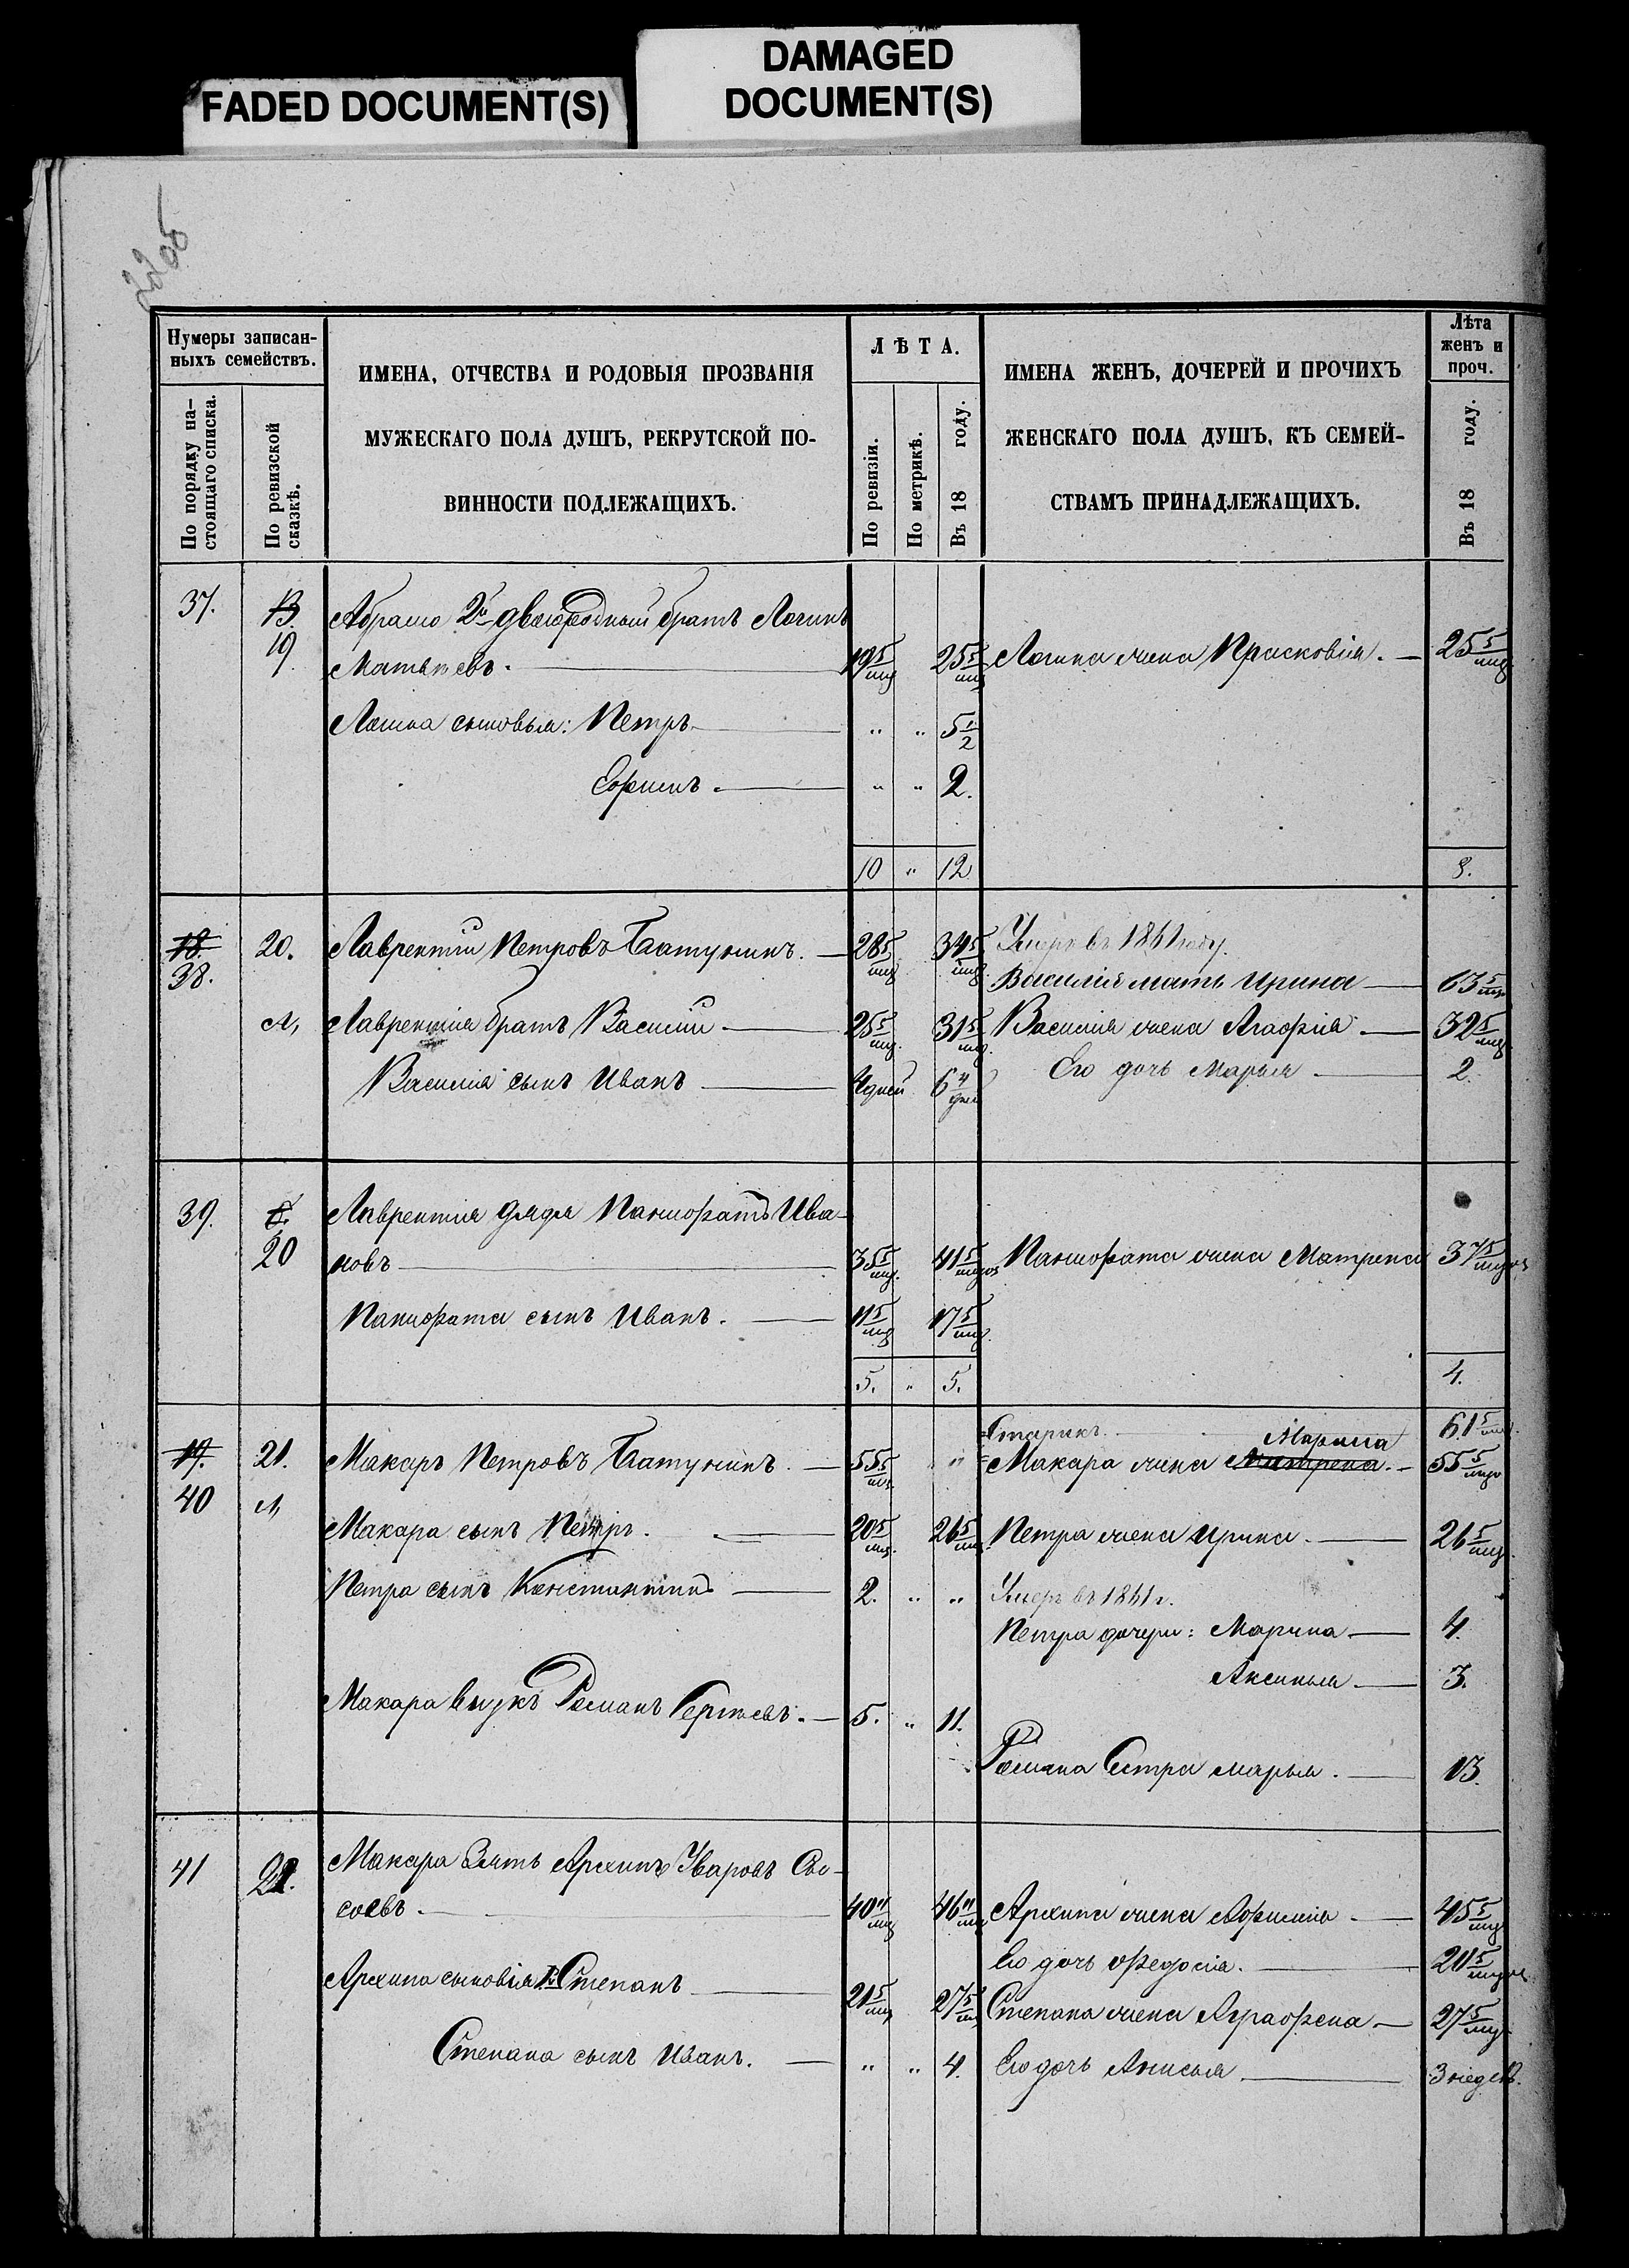 FADED DOCUMENT(S)
DAMAGED
DOCUMENT(S)
22об
Нумеры записан-
ныхъ семействъ.
По порядку на-
стоящаго списка.
По ревизской
сказкѣ.
ИМЕНА, ОТЧЕСТВА И РОДОВЫЯ ПРОЗВАНІЯ
МУЖЕСКАГО ПОЛА ДУШЪ, РЕКРУТСКОЙ ПО-
ВИННОСТИ ПОДЛЕЖАЩИХЪ.
ЛѢТА.
По ревизіи.
По метрикѣ.
Въ 18 году.
ИМЕНА ЖЕНЪ, ДОЧЕРЕЙ И ПРОЧИХЪ
ЖЕНСКАГО ПОЛА ДУШЪ, КЪ СЕМЕЙ-
СТВАМЪ ПРИНАДЛЕЖАЩИХЪ.
Лѣта
женъ и
проч.
Въ 18 году.
37. 19 2й двоюродный братъ Логинъ
Матвѣевъ. 19 5/мц 25 5/мц Логина жена Прасковія. 25 5/мц
Логина сыновья: Петръ " " 5 1/2
Ефимъ. " " 2.
10 " 12 8.
18. 20. Лаврентій Петровъ Батунинъ. 28 5/мц 34 5/мц Умеръ въ 1861 году.
38. Василія мать Ирина 63 5/мц
Лаврентія братъ Василій 25 5/мц. 31 5/мц. Василія жена Агафія 32 5/мц
Василія сынъ Иванъ 4 дней 6 4/дней Его дочь Марья 2.
39. 20 Лаврентія дядя Панкратъ Ива-
новъ 35 5/мц. 41 5/мцов Матрена 37 5/мцов
сынъ Иванъ. 11 5/мц 17 5/мц.
5. " 5. 4.
Старикъ. 61 5/мц.
19. 21. Макаръ Петровъ Батунинъ. 55 5/мц. " Макара жена Матрена. Марина 55 5/мцо
40 Макара сынъ Петръ. 20 5/мц. 26 5/мц. Петра жена Ирина. 26 5/мц.
Петра сынъ Константинъ 2. " " Умеръ въ 1861 г.
Петра дочери: Марина 4.
Аксинья 3.
Макара внукъ Романъ Сергѣевъ. 5. " 11.
Романа Сестра марья. 13.
41 21. Макара Зять Архипъ Уваровъ Сы-
соевъ. 40 11/мц 46 11/мц Архипа жена Афимья 45 5/мц
Его дочь Федосія. 20 5/мцов
Архипа сыновья 1. Степанъ 21 5/мц 27 5/мц Степана жена Аграфена 27 5/мц
Степана сынъ Иванъ. " " 4. Его дочь Анисья 3 недел.